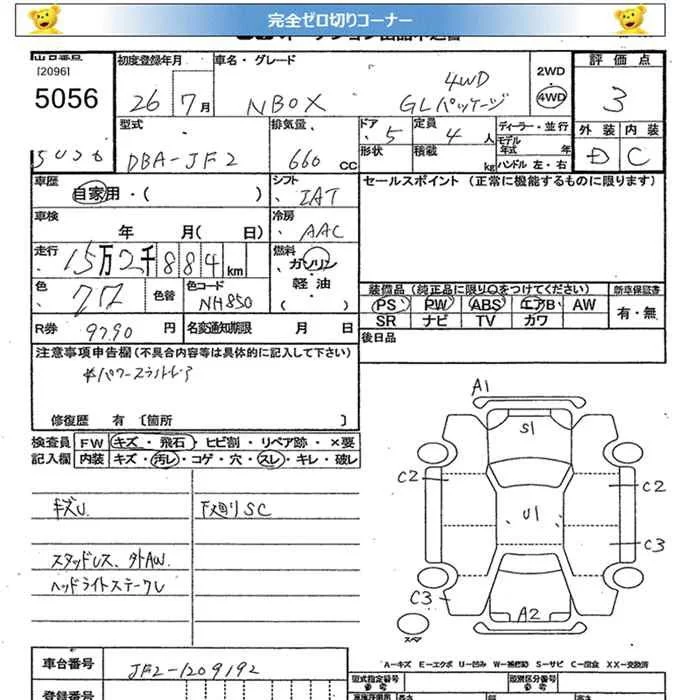 完全ゼロ切りコーナー
出品番号
[2096]
5056
5056
初度登録年月
26年7月
車名・グレード
NBOX
4WD
GLパッケージ
2WD
4WD
評価点
3
外装 内装
D C
型式
DBA-JF2
排気量
660 CC
ドア
5
形状
定員
4人
積載
kg
ディーラー・並行
モデル年式 年
ハンドル 左・右
車歴
自家用・( )
シフト
IAT
セールスポイント (正常に機能するものに限ります)
車検
年 月( 日)
冷房
AAC
走行
15万2千884km
燃料
ガソリン
軽油
( )
色
クロ
色替
色コード
NH850
装備品(純正品に限り○をつけてください)
新車保証書
PS PW ABS エアB AW
SR ナビ TV カワ
有・無
R券 9790円
名変通知期限 月 日
後日品
注意事項申告欄(不具合内容等は具体的に記入して下さい)
修復歴 有 〔箇所 〕
検査員
記入欄
FW キズ・飛石・ヒビ割・リペア跡・×要
内装 キズ・汚レ・コゲ・穴・スレ・キレ・破レ
キズU
下廻りSC
スタッドレス、外AW
ヘッドライトステークレ
A1
S1
C2
C2
U1
C3
C3
A2
スペア
車台番号
JF2-1209192
登録番号
A－キズ E－エクボ U－凹み W－補修跡 S－サビ C－腐食 XX－交換済
型式指定番号
類別区分番号
長さ
高さ